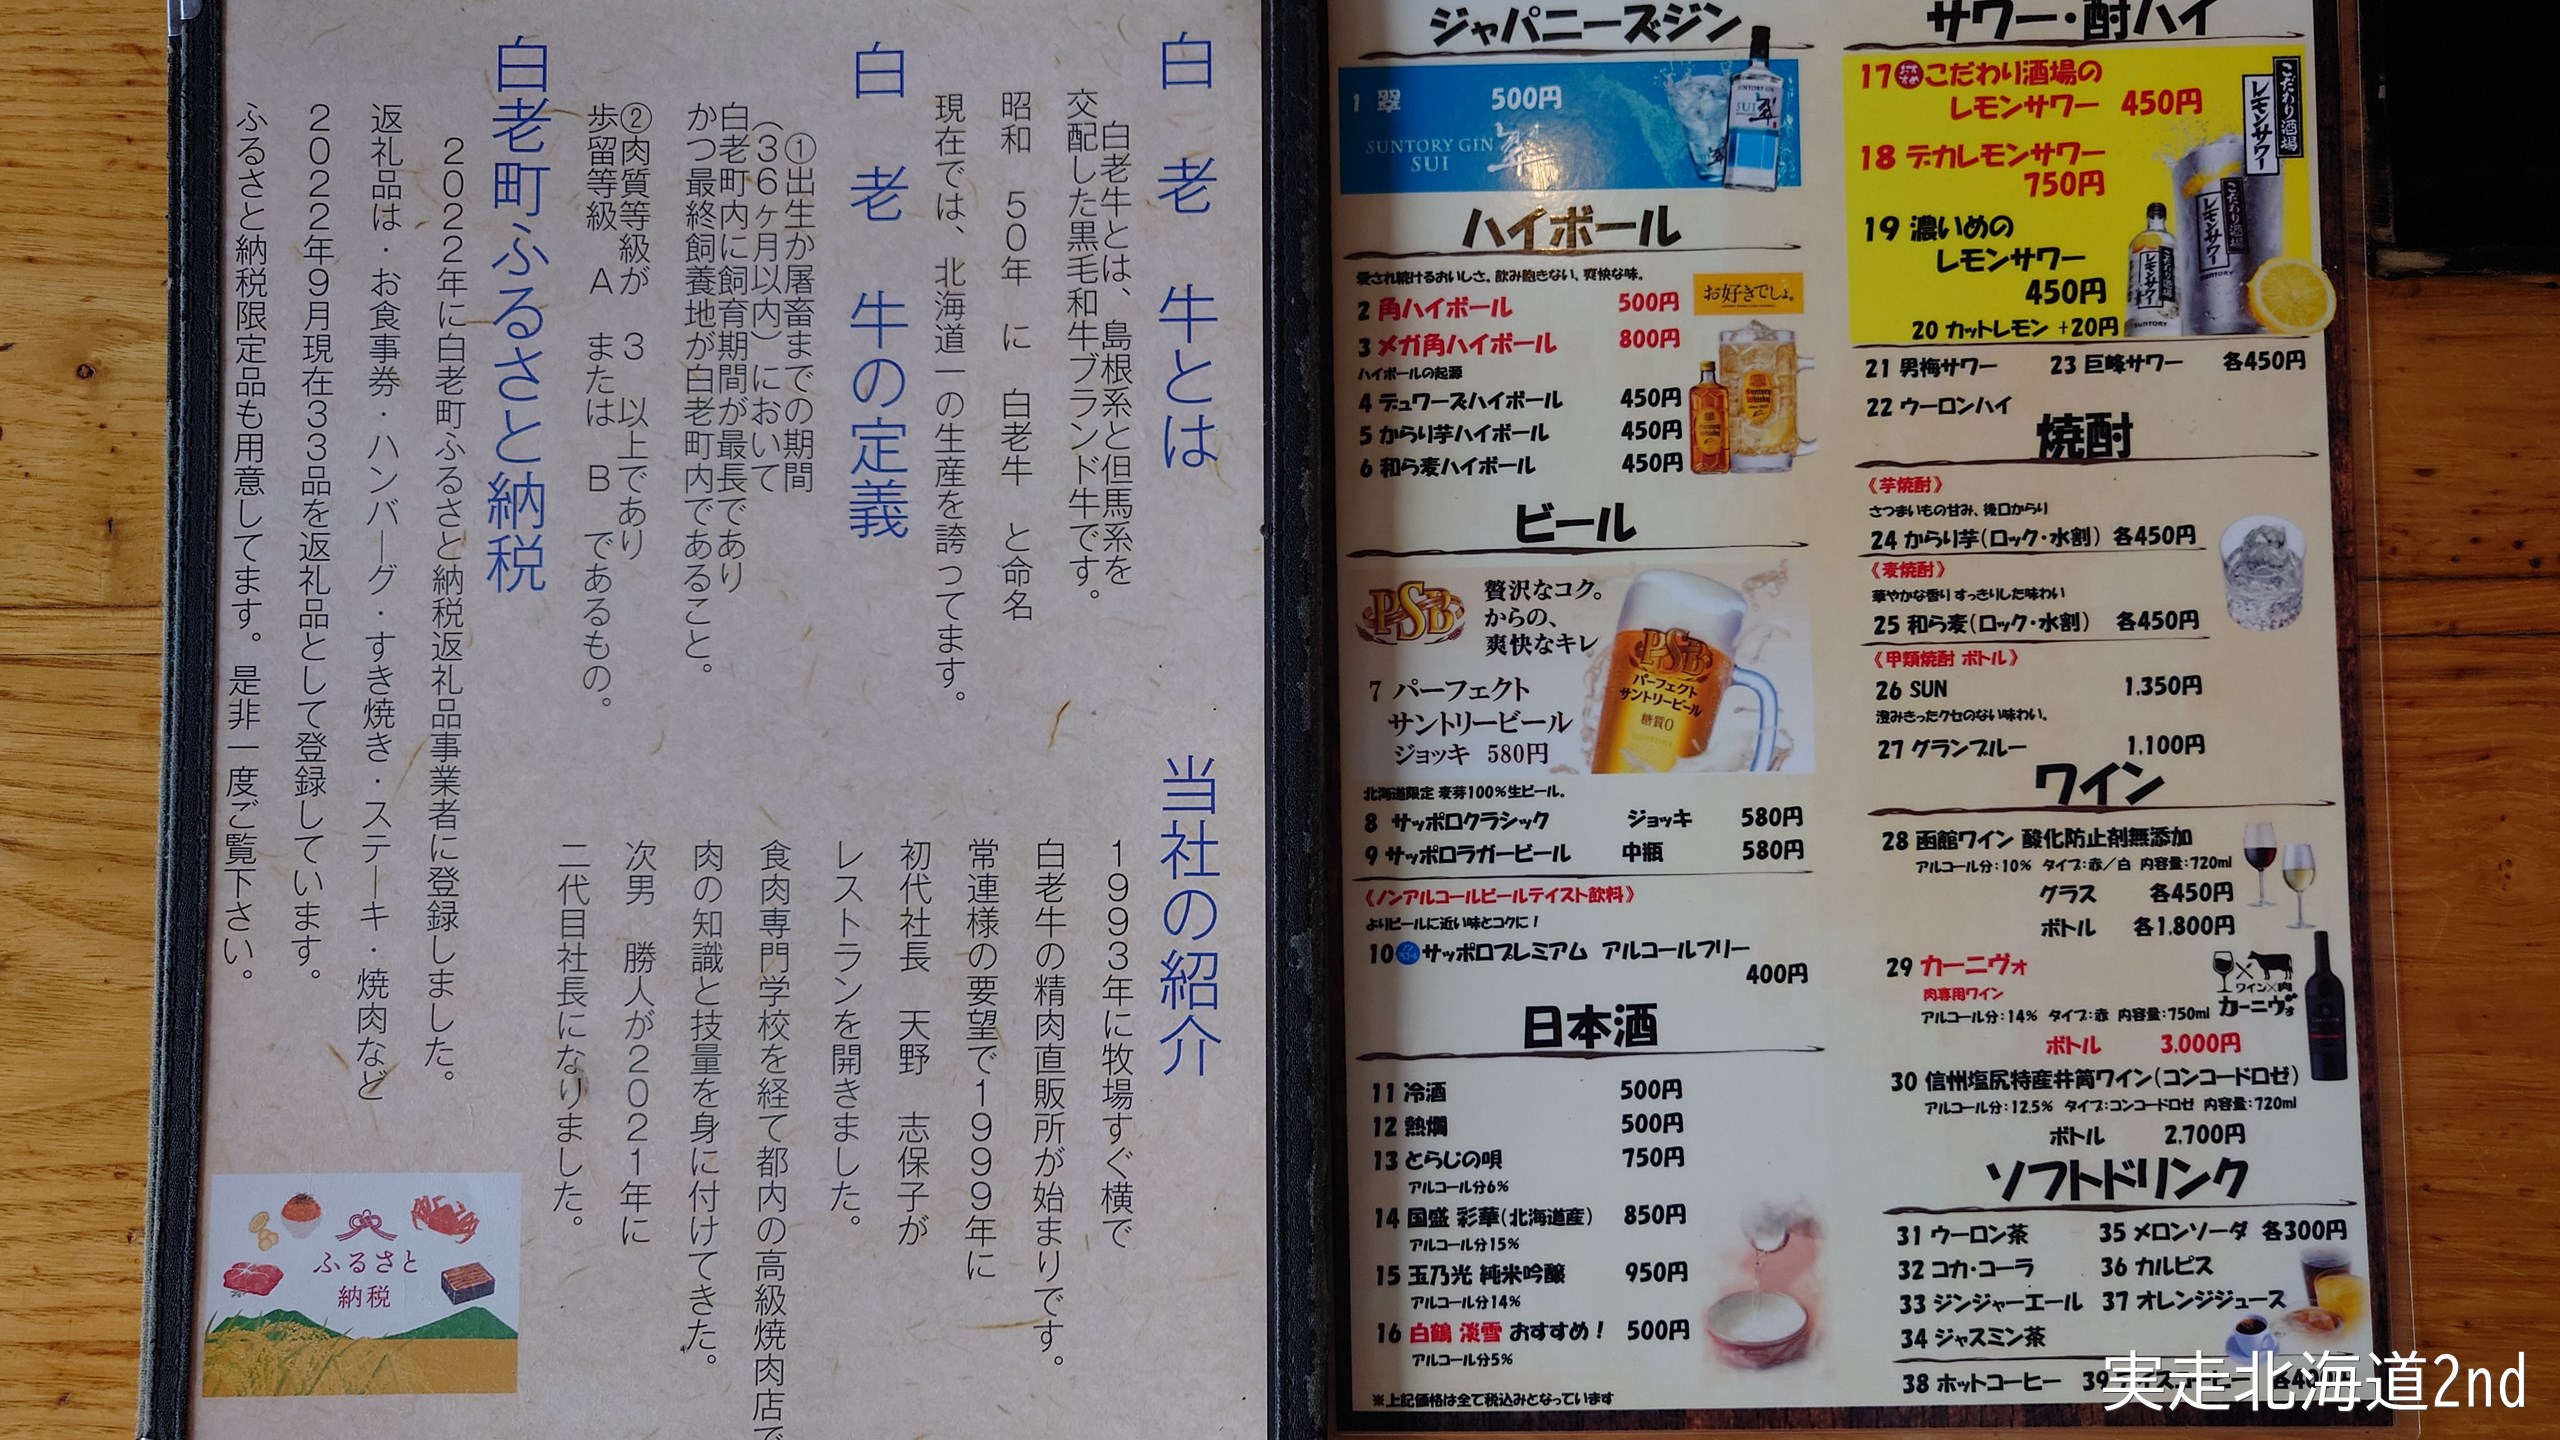 白老牛とは
白老牛とは、島根系と但馬系を
交配した黒毛和牛ブランド牛です。
昭和 50年 に 白老牛 と命名
現在では、北海道一の生産を誇ってます。
白老牛の定義
①出生か屠畜までの期間
(36ヶ月以内)において
白老町内に飼育期間が最長であり
かつ最終飼養地が白老町内であること。
②肉質等級が 3 以上であり
歩留等級 A または B であるもの。
白老町ふるさと納税
2022年に白老町ふるさと納税返礼品事業者に登録しました。
返礼品は・お食事券・ハンバーグ・すき焼き・ステーキ・焼肉など
2022年9月現在33品を返礼品として登録しています。
ふるさと納税限定品も用意してます。是非一度ご覧下さい。
当社の紹介
1993年に牧場すぐ横で
白老牛の精肉直販所が始まりです。
常連様の要望で1999年に
初代社長 天野 志保子が
レストランを開きました。
食肉専門学校を経て都内の高級焼肉店で
肉の知識と技量を身に付けてきた。
次男 勝人が2021年に
二代目社長になりました。
ふるさと
納税
ジャパニーズジン
1 翠 500円
SUNTORY GIN
SUI
翠
ハイボール
愛され続けるおいしさ。飲み飽きない、爽快な味。
お好きでしょ。
2 角ハイボール 500円
3 メガ角ハイボール 800円
ハイボールの起源
4 デュワーズハイボール 450円
5 からり芋ハイボール 450円
6 和ら麦ハイボール 450円
ビール
PSB
贅沢なコク。
からの、
爽快なキレ
PSB
パーフェクト
サントリービール
糖質0
7 パーフェクト
サントリービール
ジョッキ 580円
北海道限定 麦芽100%生ビール。
8 サッポロクラシック ジョッキ 580円
9 サッポロラガービール 中瓶 580円
《ノンアルコールビールテイスト飲料》
よりビールに近い味とコクに!
10 サッポロプレミアム アルコールフリー
400円
日本酒
11 冷酒 500円
12 熱燗 500円
13 とらじの唄 750円
アルコール分6%
14 国盛 彩華(北海道産) 850円
アルコール分15%
15 玉乃光 純米吟醸 950円
アルコール分14%
16 白鶴 淡雪 おすすめ! 500円
アルコール分5%
※上記価格は全て税込みとなっています
サワー・酎ハイ
17 おすすめ こだわり酒場の
レモンサワー 450円
18 デカレモンサワー
750円
19 濃いめの
レモンサワー
450円
20 カットレモン +20円
こだわり酒場
レモンサワー
こだわり酒場
レモンサワー
SUNTORY
21 男梅サワー 23 巨峰サワー 各450円
22 ウーロンハイ
焼酎
《芋焼酎》
さつまいもの甘み、後口からり
24 からり芋(ロック・水割) 各450円
《麦焼酎》
華やかな香り すっきりした味わい
25 和ら麦(ロック・水割) 各450円
《甲類焼酎 ボトル》
26 SUN 1,350円
澄みきったクセのない味わい。
27 グランブルー 1,100円
ワイン
28 函館ワイン 酸化防止剤無添加
アルコール分:10% タイプ:赤/白 内容量:720ml
グラス 各450円
ボトル 各1,800円
29 カーニヴォ
肉専用ワイン
アルコール分:14% タイプ:赤 内容量:750ml
ワイン×肉
カーニヴォ
ボトル 3,000円
30 信州塩尻特産井筒ワイン(コンコードロゼ)
アルコール分:12.5% タイプ:コンコードロゼ 内容量:720ml
ボトル 2,700円
ソフトドリンク
31 ウーロン茶 35 メロンソーダ 各300円
32 コカ・コーラ 36 カルピス
33 ジンジャーエール 37 オレンジジュース
34 ジャスミン茶
38 ホットコーヒー 39
実走北海道2nd